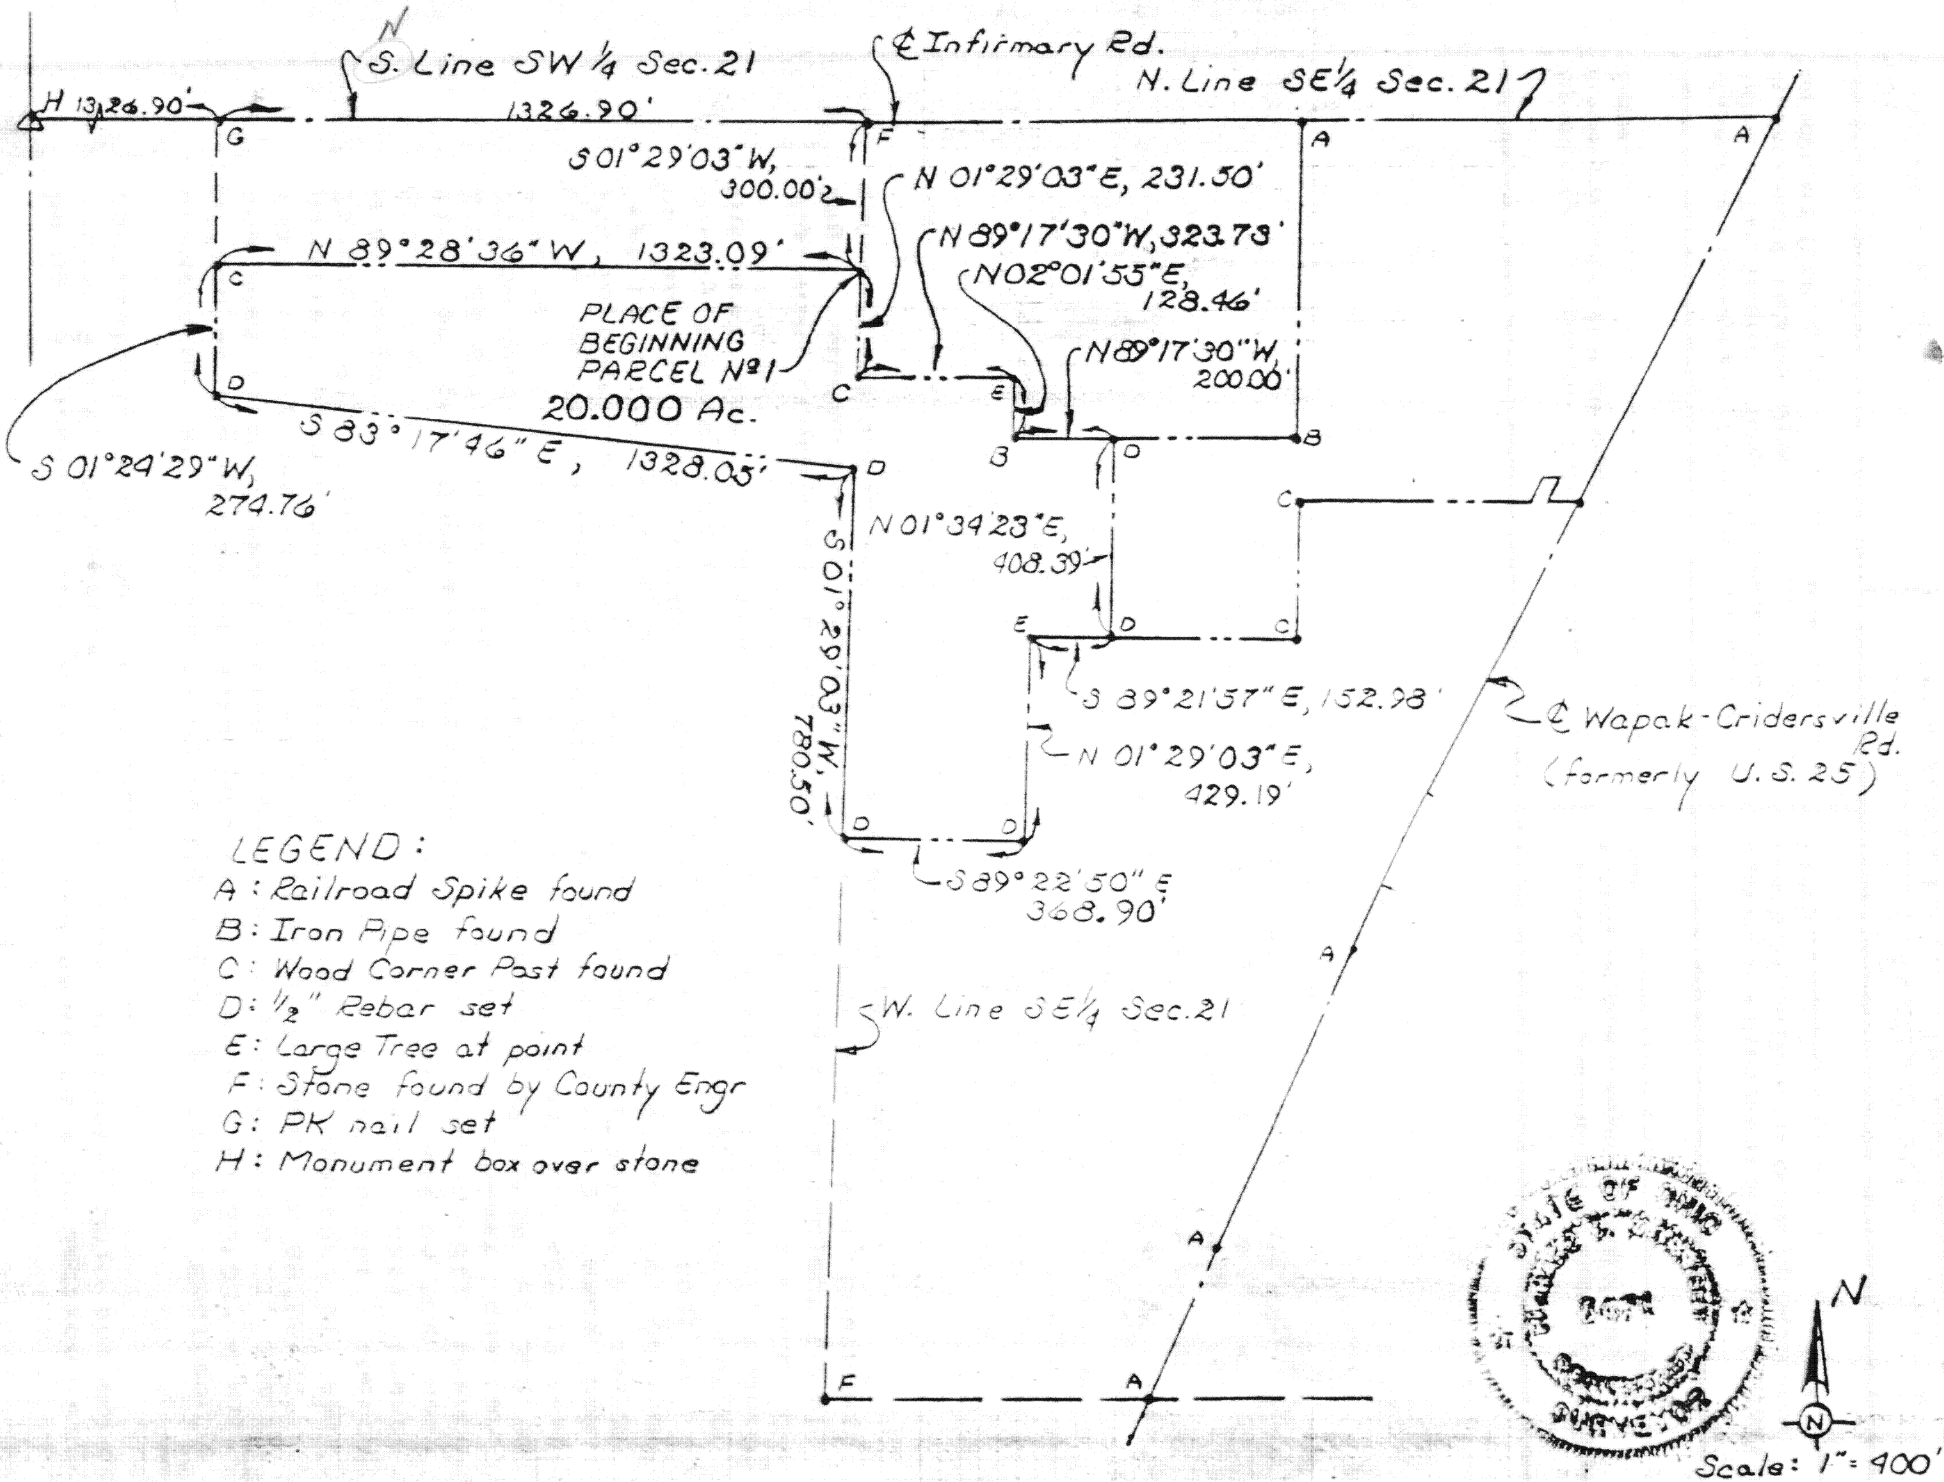 N
S. Line SW 1/4 Sec. 21
℄ Infirmary Rd.
N. Line SE 1/4 Sec. 21
H 1326.90'
1326.90'
G
F
A
A
S 01° 29' 03" W,
300.00'
N 01° 29' 03" E, 231.50'
N 89° 28' 36" W, 1323.09'
N 89° 17' 30" W, 323.73'
N 02° 01' 55" E,
128.46'
C
PLACE OF
BEGINNING
PARCEL Nº 1
20.000 Ac.
N 89° 17' 30" W,
200.00'
D
C
E
B
D
B
S 83° 17' 46" E, 1328.05'
D
S 01° 24' 29" W,
274.76'
C
N 01° 34' 23" E,
408.39'
S 01° 29' 03" W,
780.50'
E
D
C
S 89° 21' 57" E, 152.98'
℄ Wapak-Cridersville
Rd.
(formerly U.S. 25)
N 01° 29' 03" E,
429.19'
D
D
S 89° 22' 50" E
368.90'
LEGEND:
A: Railroad Spike found
B: Iron Pipe found
C: Wood Corner Post found
D: 1/2" Rebar set
E: Large Tree at point
F: Stone found by County Engr
G: PK nail set
H: Monument box over stone
A
W. Line SE 1/4 Sec. 21
A
F
A
STATE OF OHIO
N
N
Scale: 1" = 400'